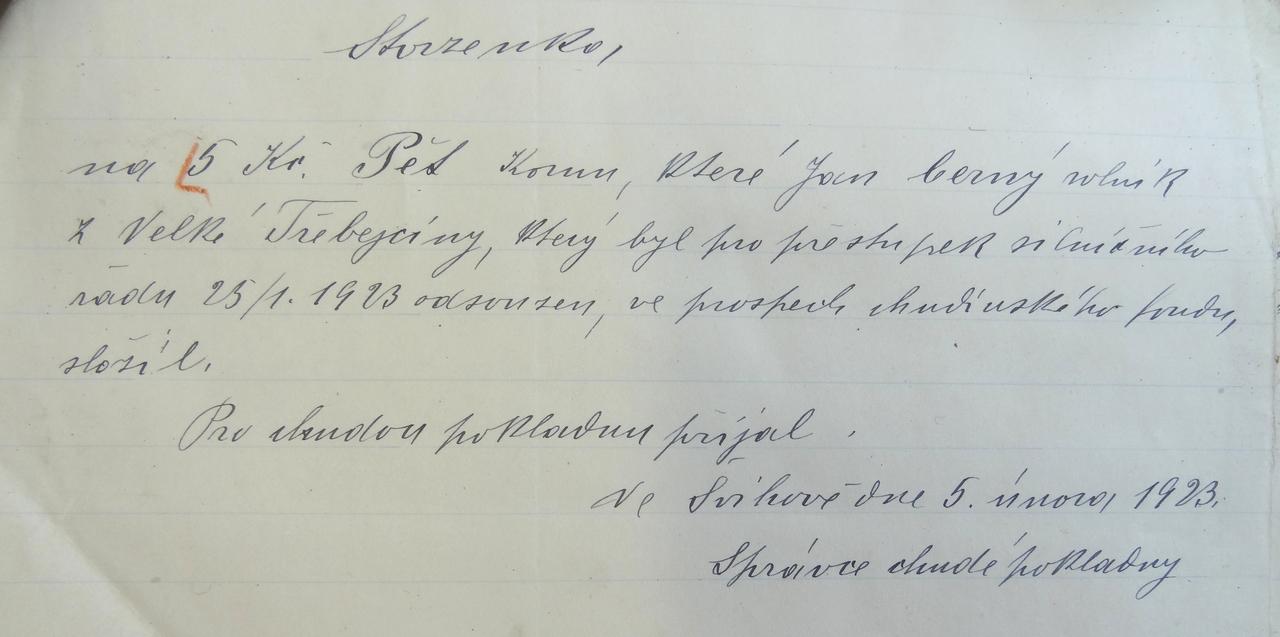 Stvrzenka,
na 5 Kč. Pět Korun, které Jan Černý rolník
z Velké Třebejčiny, který byl pro přestupek silničního
řádu 25/1. 1923 odsouzen, ve prospěch chudinského fondu,
složil.
Pro chudou pokladnu přijal.
Ve Švihově dne 5. února 1923.
Správce chudé pokladny